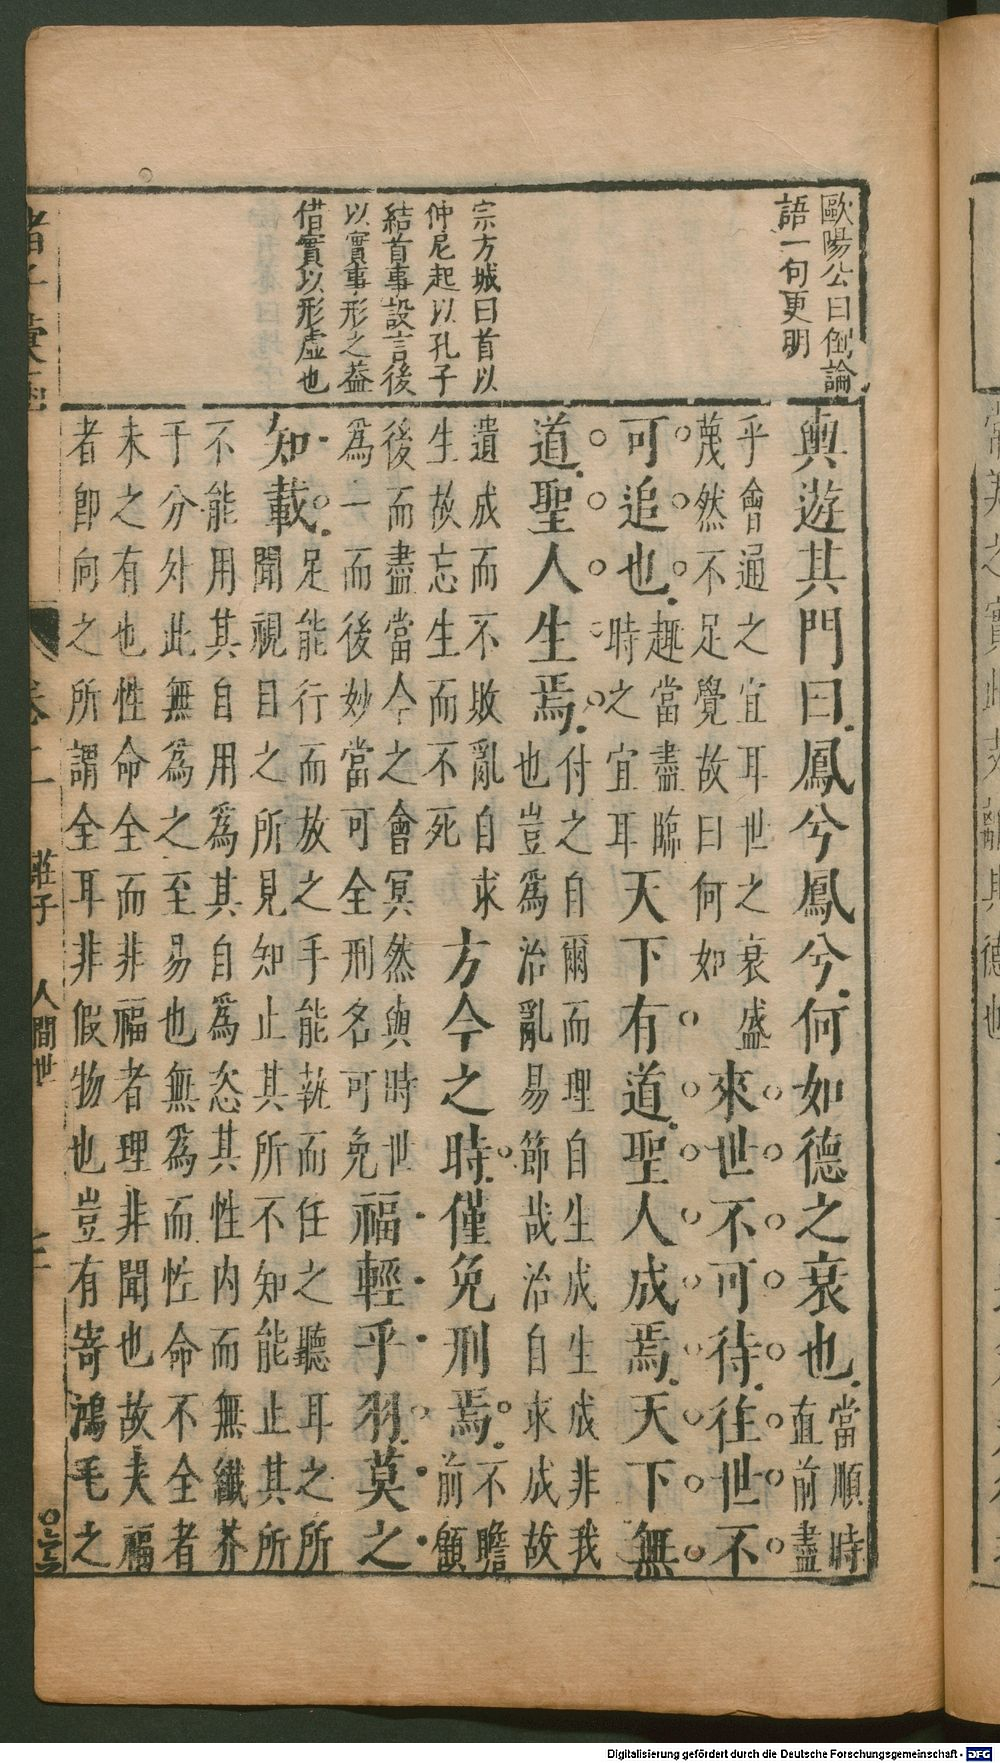 歐陽公曰倒論
語一句更明
宗方城曰首以
仲尼起以孔子
結首事設言後
以實事形之益
借實以形虛也
輿遊其門曰鳳兮鳳兮何如德之衰也當順時
直前盡
乎會通之宜耳世之衰盛
蔑然不足覺故曰何如來世不可待往世不
可追也趣當盡臨
時之宜耳天下有道聖人成焉天下無
道聖人生焉付之自爾而理自生成生成非我
也豈爲治亂易節哉治自求成故
遺成而不敗亂自求
生故忘生而不死方今之時僅免刑焉不瞻
前顧
後而盡當今之會冥然與時世
爲一而後妙當可全刑名可免福輕乎羽莫之
知載足能行而放之手能執而任之聽耳之所
聞視目之所見知止其所不知能止其所
不能用其自用爲其自爲恣其性內而無纖芥
于分外此無爲之至易也無爲而性命不全者
未之有也性命全而非福者理非聞也故夫福
者即向之所謂全耳非假物也豈有寄鴻毛之
莊子 人間世
Digitalisierung gefördert durch die Deutsche Forschungsgemeinschaft - DFG